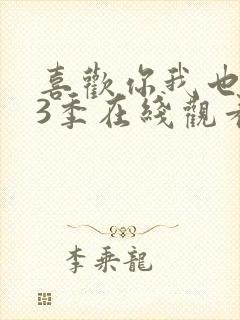 喜歡你我也
3季在綫觀看
李乘龍